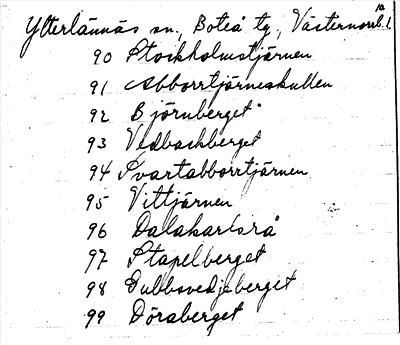 10
Ytterlännäs sn., Boteå tg, Västernorrl. l.
90 Stockholmstjärnen
91 Abborrtjärnskullen
92 Björnberget
93 Vedbackberget
94 Svartabborrtjärnen
95 Vittjärnen
96 Dalakarlsrå
97 Stapelberget
98 Dubbsvedjeberget
99 Döraberget